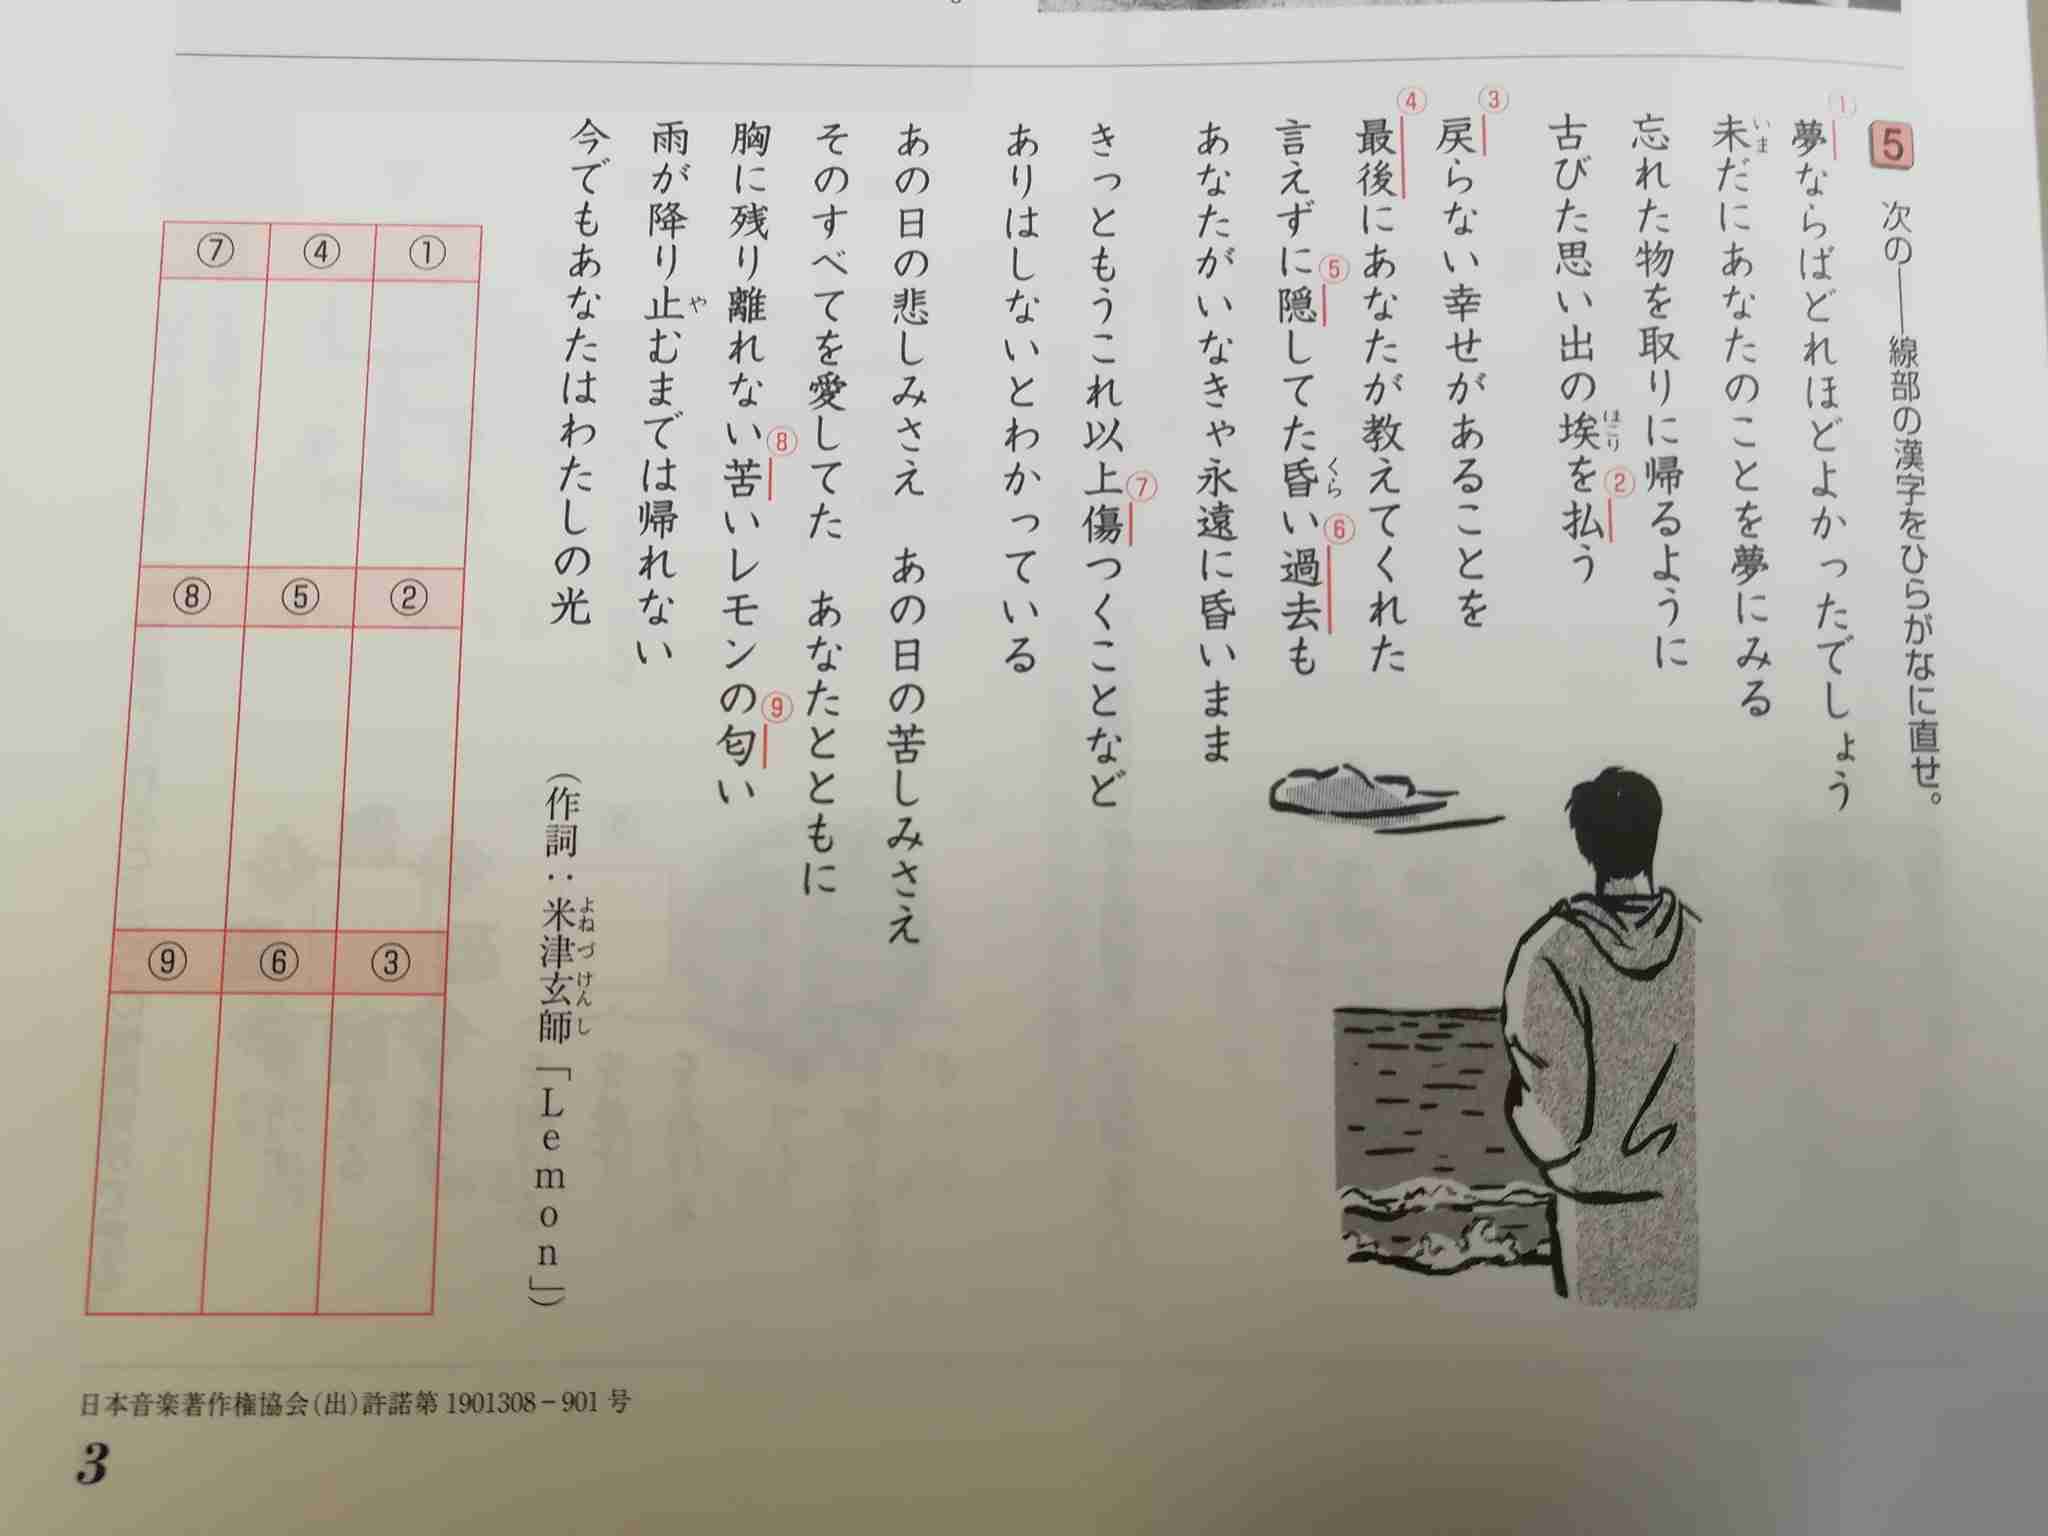 5 次の――線部の漢字をひらがなに直せ。
①夢ならばどれほどよかったでしょう
未だにあなたのことを夢にみる
いま
忘れた物を取りに帰るように
古びた思い出の埃を②払う
ほこり
③戻らない幸せがあることを
④最後にあなたが教えてくれた
言えずに⑤隠してた昏い⑥過去も
くら
あなたがいなきゃ永遠に昏いまま
きっともうこれ以上⑦傷つくことなど
ありはしないとわかっている
あの日の悲しみさえ あの日の苦しみさえ
そのすべてを愛してた あなたとともに
胸に残り離れない⑧苦いレモンの⑨匂い
雨が降り止むまでは帰れない
や
今でもあなたはわたしの光
(作詞:米津玄師「Lemon」)
よねづけんし
① ② ③
④ ⑤ ⑥
⑦ ⑧ ⑨
日本音楽著作権協会(出)許諾第1901308－901号
3